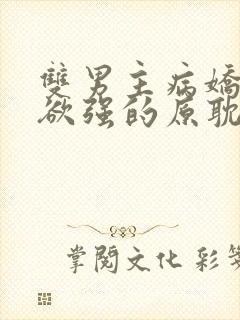 雙男主病嬌
欲强的原耽
掌閱文化 彩